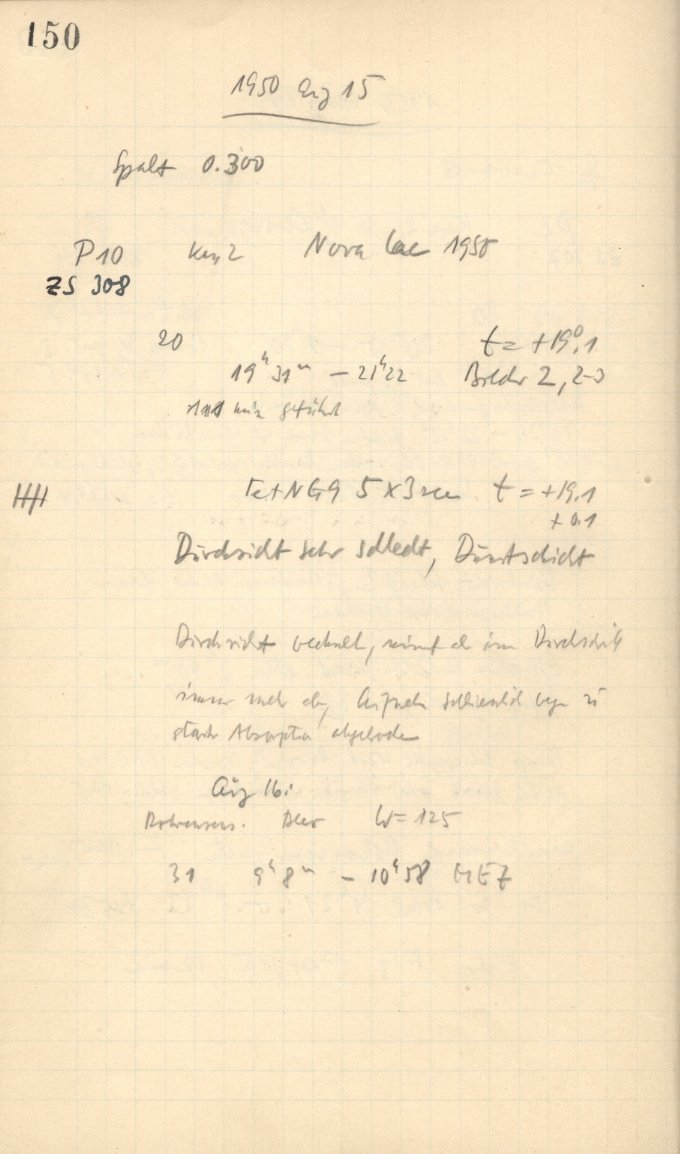 150
1950 Aug 15
Spalt 0.300
P 10 Nova Lac 1950
ZS 308
20 t = +19°.1
19ʰ 31ᵐ – 21ʰ 22 Bilder 2, 2-3
111 min geführt
5 x 3 sec t = +19.1
+ 0.1
Durchsicht sehr schlecht, Dunstschicht
Durchsicht wechselt, nimmt im Durchschnitt
immer mehr ab, Aufnahme schliesslich wegen zu
starker Absorption abgebrochen
Aug 16:
W = 125
31 9ʰ 8ᵐ – 10ʰ 58 MEZ